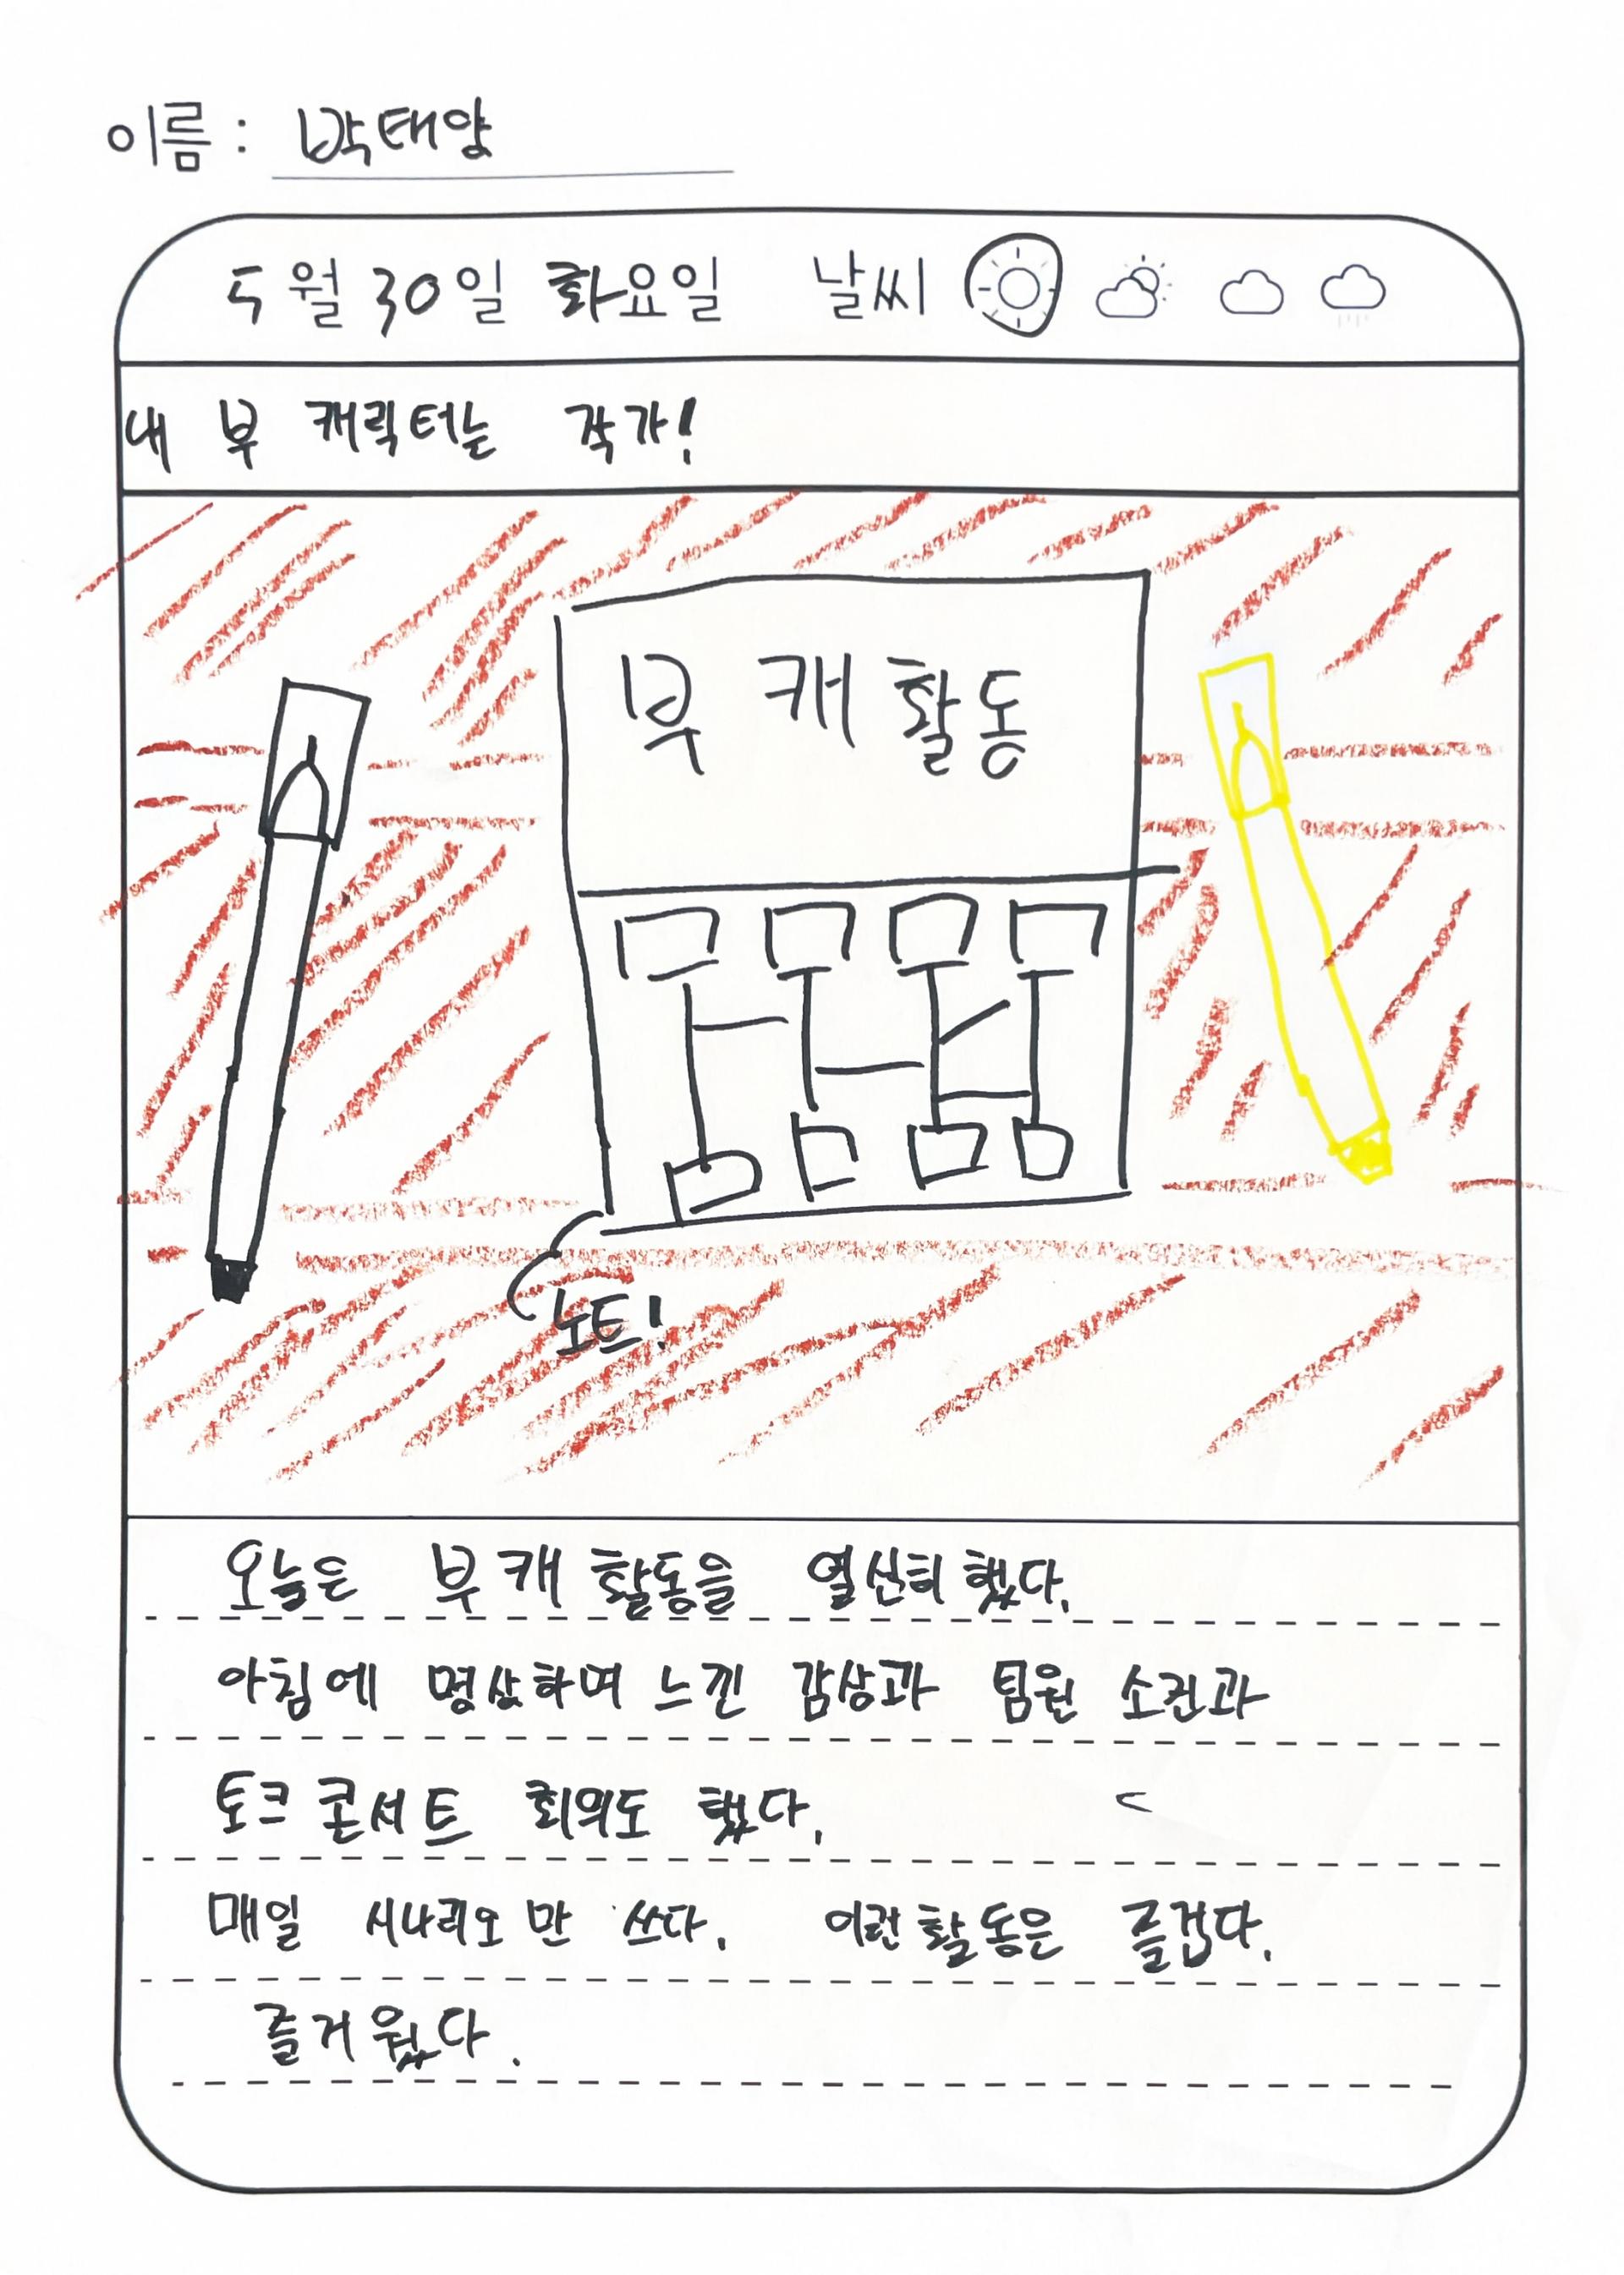 이름 : 박태양
5월 30일 화요일 날씨
내 부 캐릭터는 작가!
부 캐 활동
노트!
오늘은 부캐 활동을 열심히 했다.
아침에 명상하며 느낀 감상과 팀원 소개과
토크 콘서트 회의도 했다.
매일 시나리오만 쓰다. 이런 활동은 즐겁다.
즐거웠다.